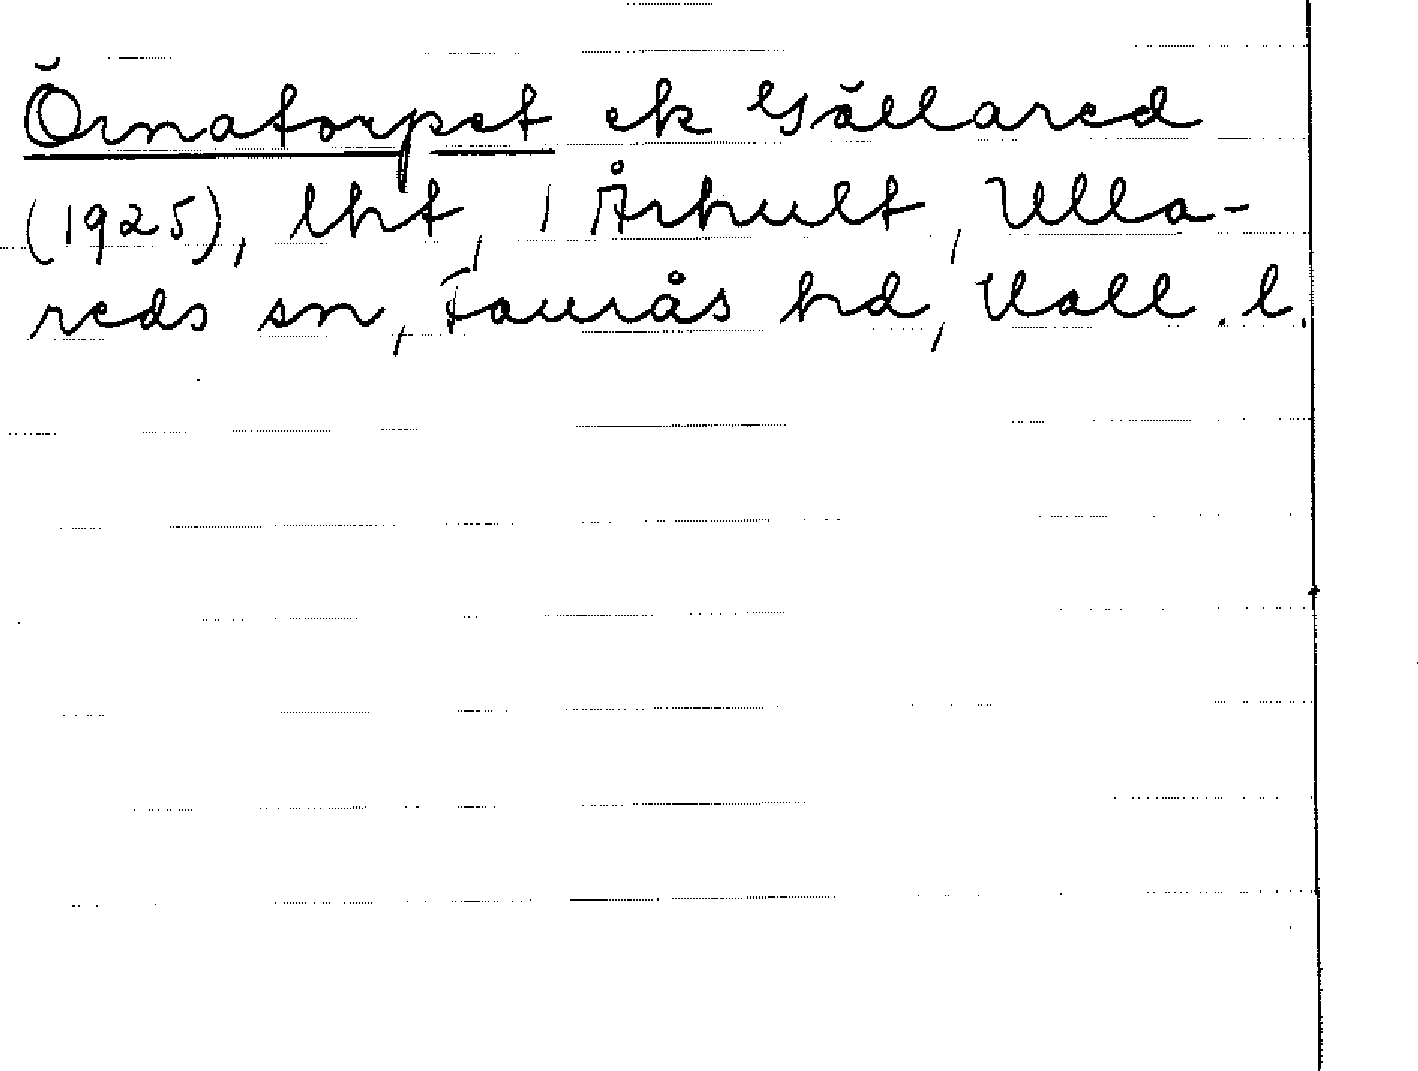 Örnatorpet ek Gällared
(1925), lht, 1 Århult, Ulla-
reds sn, Faurås hd, Hall. l.